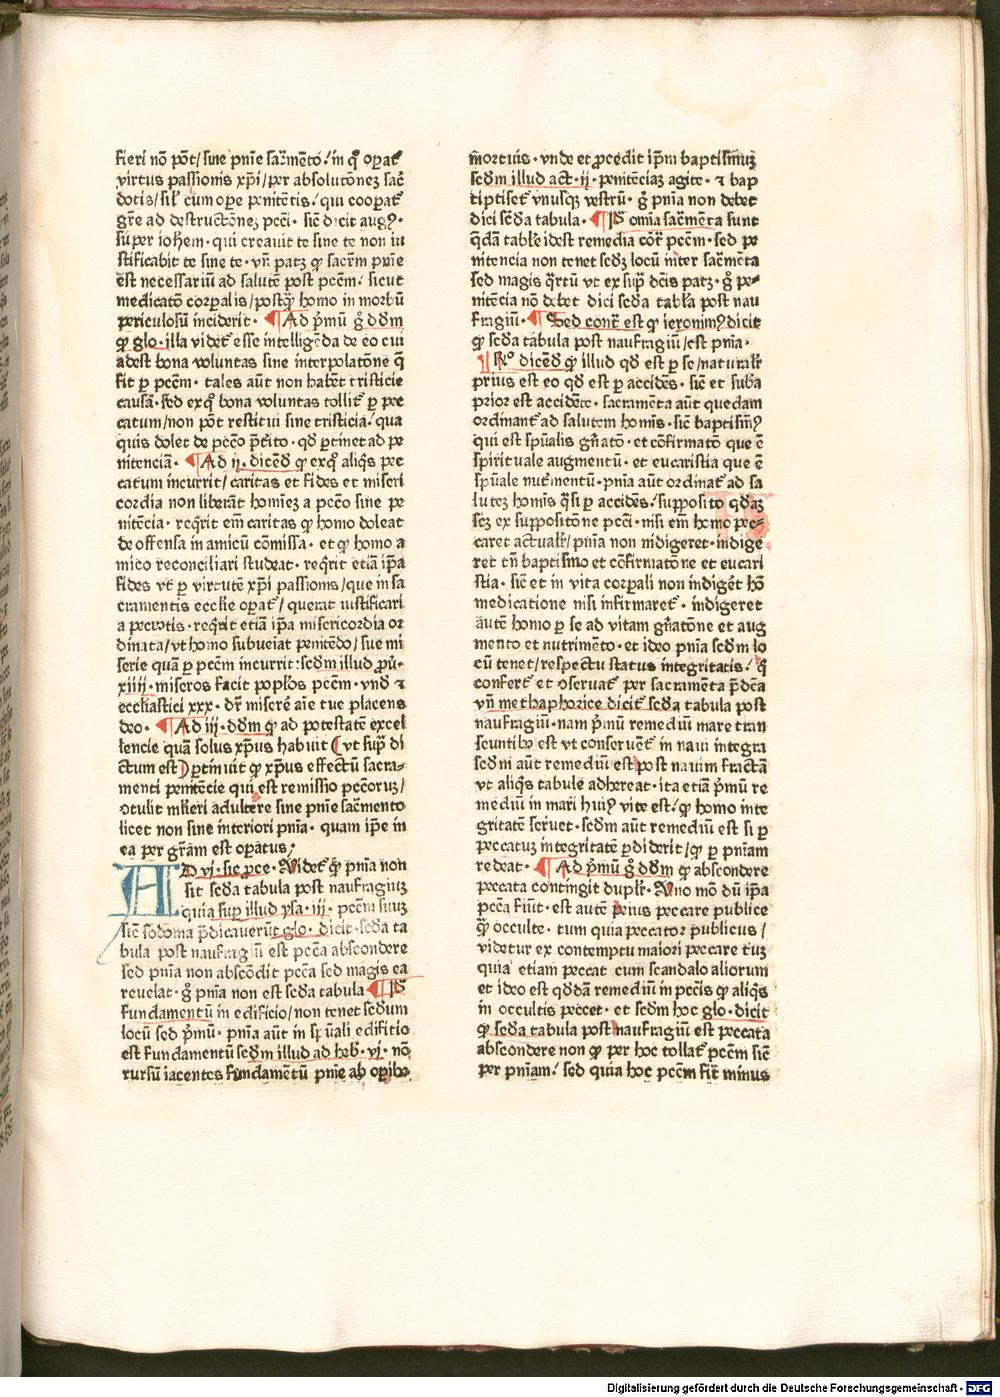 fieri nō pōt/sine pn̄ie sacr̄mēto/in qͦ oꝑat᷑
virtus passionis xp̄i/per absolutōneꝫ sac̄
dotis/sil’ cum oꝑe penitētis/ qui cooꝑat᷑
gr̄e ad destructōneꝫ pcc̄i· sic̄ dicit augꝰ·
super ioh̄em· qui creauit te sine te non iu
stificabit te sine te· vn̄ patꝫ ꝙ sacr̄m pn̄ie
est necessariū ad salutē post pcc̄m/ sicut
medicatō corꝑalis/postꝙ̄ homo in morbū
periculosū inciderit· Ad p̄mū gͦ dd̄m
ꝙ glo· illa videt᷑ esse intelligēda de eo cui
adest bona voluntas sine interpolatōne q̄
fit ꝑ pcc̄m· tales aūt non habēt tristicie
causā· sed exqͦ bona voluntas tollit᷑ ꝑ pec
catum/non pōt restitui sine tristicia/ qua
quis dolet de pcc̄o p̄t̄ito· qd̄ ꝑtinet ad pe
nitenciā· Ad ij· dicēd̄ ꝙ exqͦ aliqͥs pec
catum incurrit/caritas et fides et miseri
cordia non liberāt homīeꝫ a pcc̄o sine pe
nitēcia· reqͥrit em̄ caritas ꝙ homo doleat
de offensa in amicū cōmissa· et ꝙ homo a
mico reconciliari studeat· reqͥrit etiā ip̄a
fides vt ꝑ virtutē xp̄i passionis/que in sa
cramentis eccl̄ie oꝑat᷑/querat iustificari
a peccatis· reqͥrit etiā ip̄a misericordia or
dinata/vt homo subueiat penitēdo/sue mi
serie quā ꝑ pcc̄m incurrit:scd̄m illud ꝓū·
xiiii· miseros facit popl̄os pcc̄m· vnd̄ ⁊
eccl̄iastici xxx· dr̄ miserē aīe tue placens
deo· Ad iij· dd̄m ꝙ ad potestatē excel
lencie quā solus xp̄us habuit (vt supͣ di
ctum est) ꝑtinuit ꝙ xp̄us effectū sacra⸗
menti penitēcie qui est remissio pcc̄oruꝫ/
ꝯtulit ml̄ieri adultere sine pn̄ie sacr̄mento
licet non sine interiori pn̄ia· quam ip̄e in
ea per gr̄am est oꝑatus/
AD vj· sic ꝓce· Uidet᷑ ꝙ̄ pn̄ia non
sit scd̄a tabula post naufragiuꝫ
quia suꝑ illud ysa· iij· pcc̄m suuꝫ
sic̄ sodoma p̄dicauerūt glo· dicit· scd̄a ta
bula post naufragiū est pcc̄a abscondere
sed pn̄ia non abscōdit pcc̄a sed magis ea
reuelat· gͦ pn̄ia non est scd̄a tabula P̄
fundamentū in edificio/non tenet secdum
locū sed p̄mū· pn̄ia aūt in spūali edificio
est fundamentū scd̄m illud ad heb̄· vj· nō
rursū iacentes fundamētū pn̄ie ab oꝑibꝰ
mortuis· vnde et p̄cedit ip̄m baptismuꝫ
scd̄m illud act· ij· penitēciaꝫ agite· ⁊ bap
tiꝑtiset᷑ vnusꝙ vestrū· gͦ pn̄ia non debet
dici scd̄a tabula· P̄ om̄ia sacr̄mēta sunt
qͣdā tabl̄e idest remedia cōtͣ pcc̄m· sed pe
nitencia non tenet scd̄ꝫ locū inter sacr̄mēta
sed magis qͣrtū vt ex supͣ dc̄is patꝫ· gͦ pe⸗
nitēcia nō debet dici scd̄a tabl̄a post nau
fragiū· Sed contͣ est ꝙ ieronimꝰ dicit
ꝙ scd̄a tabula post naufragiū/est pn̄ia·
Rͦ dicēd̄ ꝙ illud qd̄ est ꝑ se/naturalr̄
prius est eo qd̄ est ꝑ accidēs· sic̄ et suba
prior est accidēte· sacramēta aūt quedam
ordinant᷑ ad salutem homīs· sic̄ baptismꝰ
qui est spūalis gn̄atō· et cōfirmatō que ē
spirituale augmentū· et eucaristia que ē
spūale nutrīmentū· pn̄ia aūt ordinat᷑ ad sa
lutez homīs qͣsi ꝑ accidēs/ supposito qͦdaꝫ
scꝫ ex suppositōne pcc̄i· nisi em̄ homo pec⸗
caret actualr̄/pn̄ia non indigeret· indige
ret tn̄ baptismo et cōfirmatōne et eucari
stia· sic̄ et in vita corꝑali non indigēt hō
medicatione nisi infirmaret᷑· indigeret
autē homo ꝑ se ad vitam gn̄atōne et aug
mento et nutrimēto· et ideo pn̄ia scd̄m lo
cū tenet/respectu status integritatis/ qͥ
confert᷑ et ꝯseruat᷑ per sacramēta p̄dc̄a
vn̄ methaphorice dicit᷑ scd̄a tabula post
naufragiū· nam p̄mū remediū mare tran
seuntibꝰ est vt conseruēt᷑ in naui integra
scd̄m aūt remediū est post nauim fractā
vt aliqͥs tabule adhereat· ita etiā p̄mū re
mediū in mari huiꝰ vite est/ ꝙ homo inte
gritatē seruet· scd̄m aūt remediū est si ꝑ
peccatuꝫ integritatē ꝑdiderit/ꝙ ꝑ pn̄iam
redeat· Ad p̄mū gͦ dd̄m ꝙ abscondere
peccata contingit duplr̄· Uno mō dū ip̄a
pcc̄a fiūt· est autē peius peccare publice
ꝙ̄ occulte· tum quia peccator publicus/
videtur ex contemptu maiori peccare tuꝫ
quia etiam peccat cum scandalo aliorum
et ideo est qd̄dā remediū in pcc̄is ꝙ aliqͥs
in occultis peccet· et scd̄m hoc glo· dicit
ꝙ scd̄a tabula post naufragiū est peccata
abscondere non ꝙ per hoc tollat᷑ pcc̄m sic̄
per pn̄iam/ sed quia hoc pcc̄m fit minus
Digitalisierung gefördert durch die Deutsche Forschungsgemeinschaft - DFG